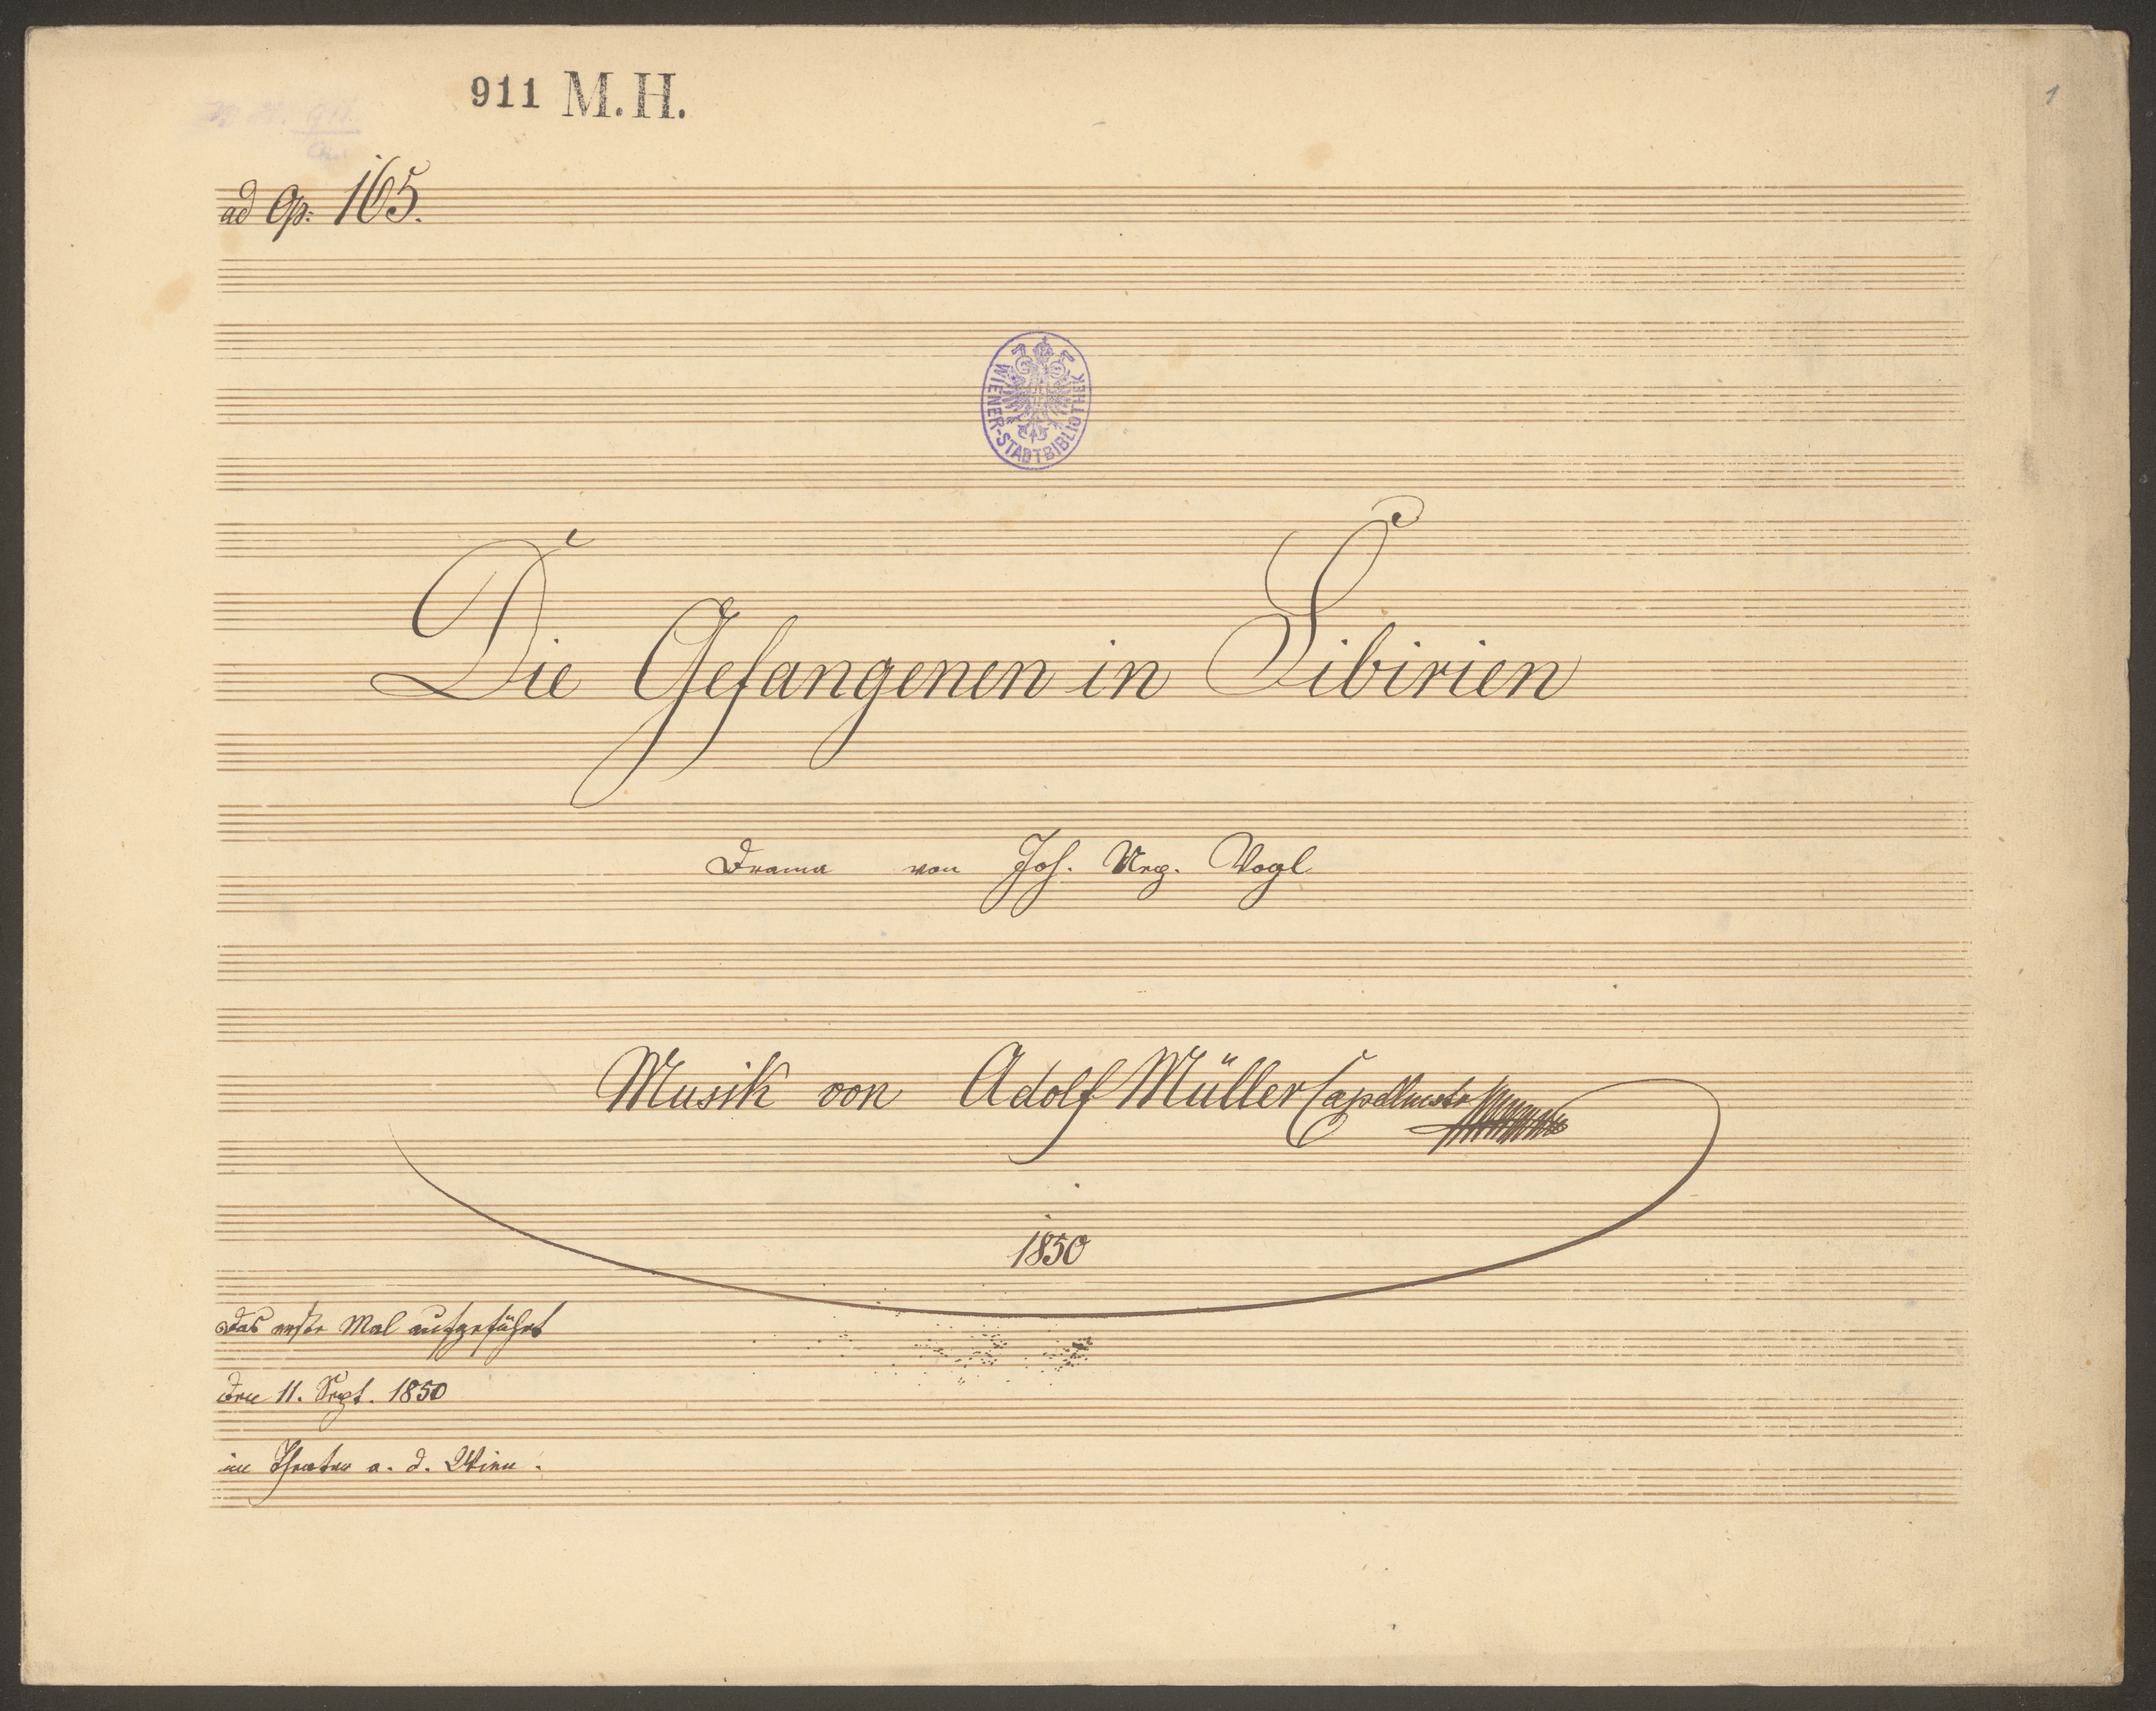 911 M.H.
1
ad Op: 165.
WIENER-STADTBIBLIOTHEK
Die Gefangenen in Sibirien
Drama von Joh. Nep. Vogl
Musik von Adolf Müller Capellmstr
1850
Das erste Mal aufgeführt
den 11. Sept. 1850
im Theater a. d. Wien.